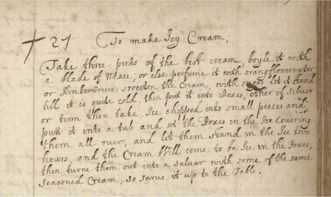 27 To make Icy Cream,
Take three pints of the best cream, boyle it with
a blade of Mace, or else perfume it with orang flower water
or Ambergreece, sweeten the Cream, with sugar let it stand
till it is quite cold, then put it into Boxes, ether of Silver
or tinn then take, Ice chopped into small peeces and
putt it into a tub and set the Boxes in the Ice covering
them all over, and let them stand in the Ice two
hours, and the Cream Will come to be Ice in the Boxes,
then turne them out into a salvar with some of the same
Seasoned Cream, so sarve it up to the Table.